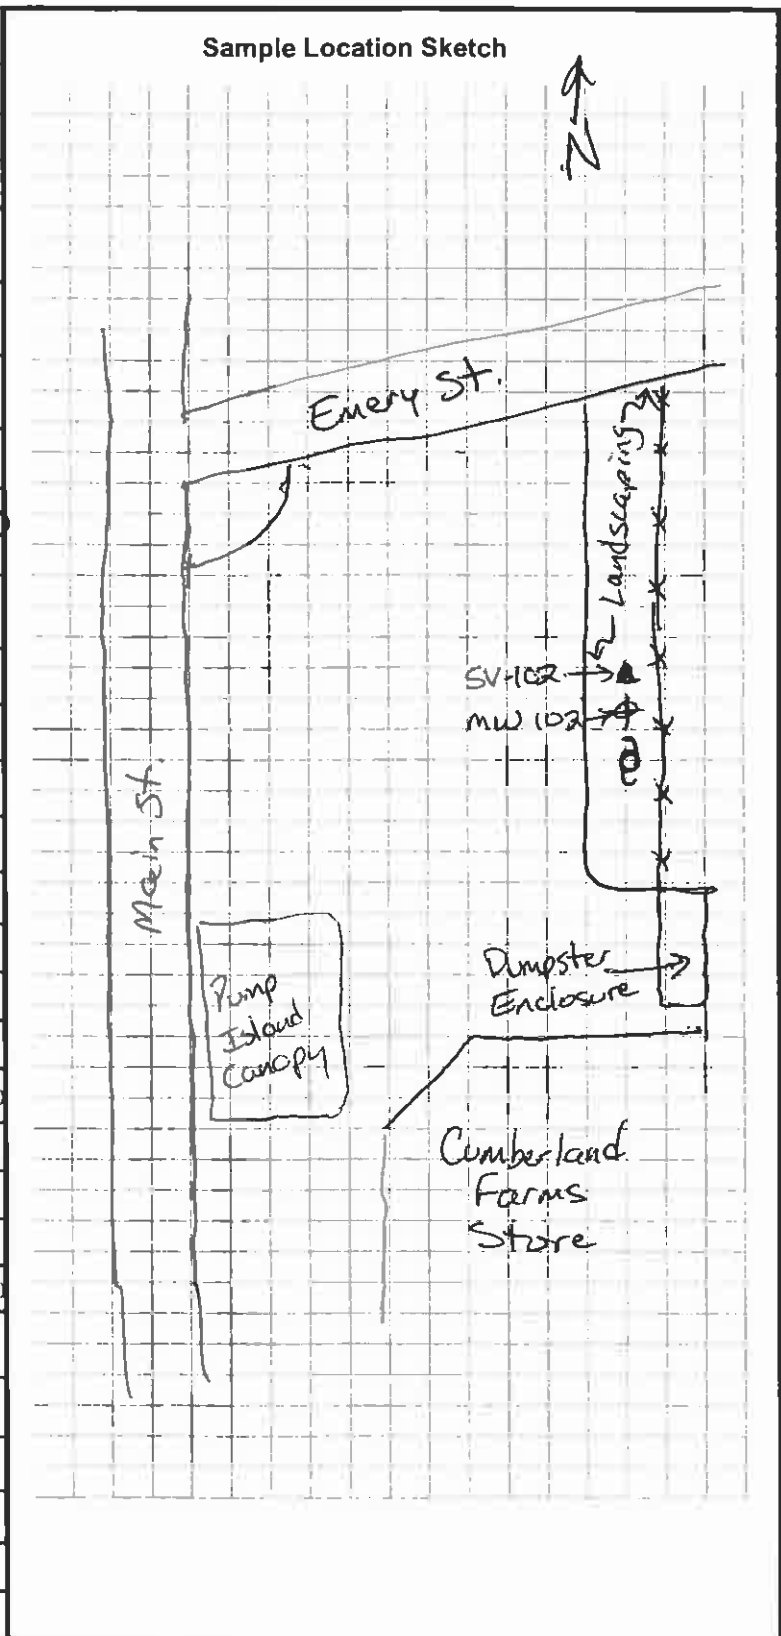 Sample Location Sketch
N
Emery St.
Landscaping
SV-102
MW 102
Main St.
Pump
Island
Canopy
Dumpster
Enclosure
Cumberland
Farms
Store